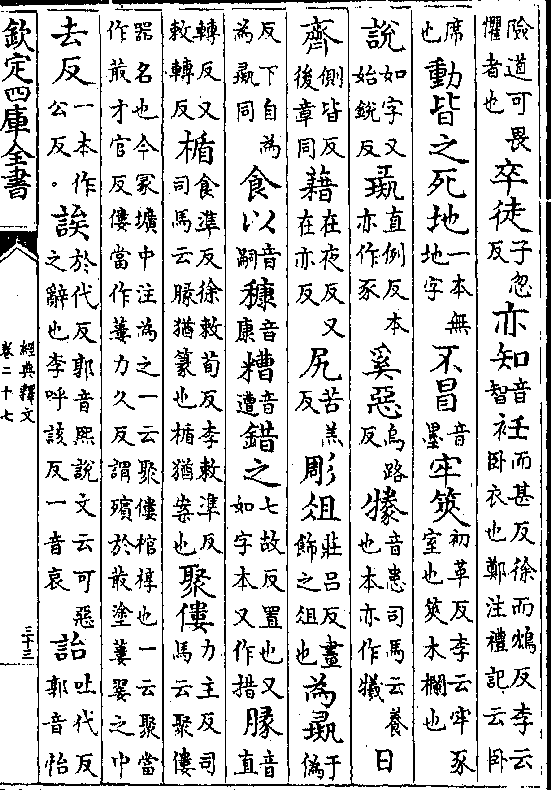 險道可畏懼者也卒徒子忽反亦知音智衽而甚反徐而鴆反李云卧衣也鄭注禮記云卧
席也動皆之死地一本無地字不冒音墨牢筴初革反李云牢豕室也筴木欄也
說如字又始銳反彘直例反本亦作豕奚惡烏路反㹖音患司馬云養也本亦作犧日
齊側皆反後章同藉在夜反又在亦反尻苦羔反彫俎莊呂反畫飾之俎也為彘于偽
反下自為彘同食以音嗣穅音康糟音遭錯之七故反置也又如字本又作措腞音直
轉反又敕轉反楯食準反徐敕荀反李敕準反司馬云腞猶篆也楯猶案也聚僂力主反司馬云聚僂
器名也今冢壙中注為之一云聚僂棺椁也一云聚當作菆才官反僂當作蔞力久反謂殯於菆塗蔞翣之中
去反一本作公反。誒於代反郭音熙說文云可惡之辭也李呼該反一音哀詒吐代反郭音怡
欽定四庫全書
經典釋文
卷二十七
三十三